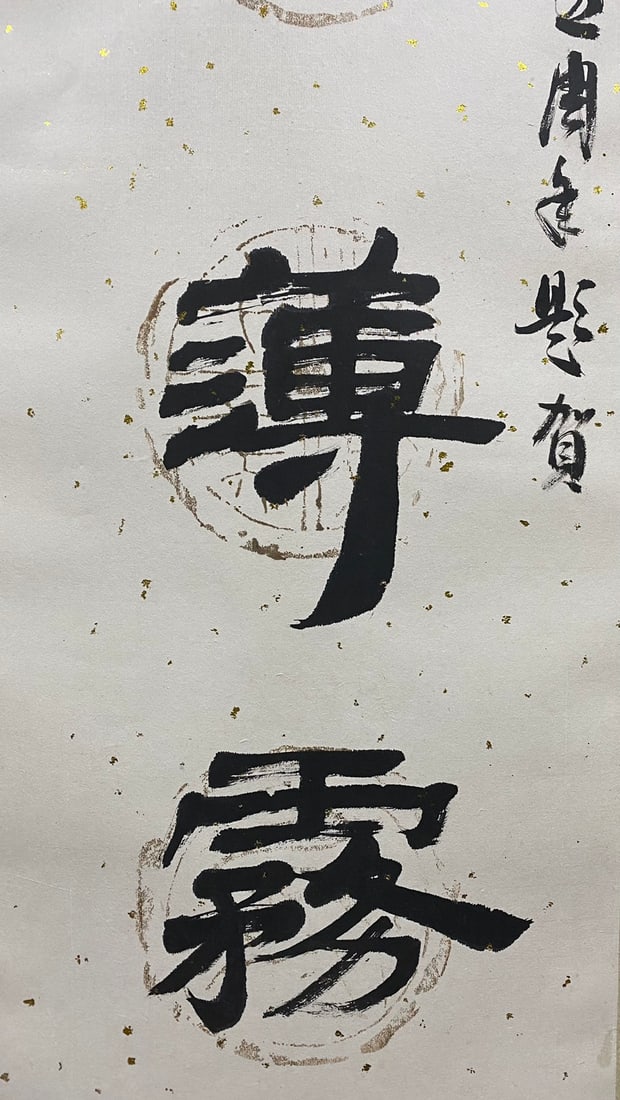 周年題賀
薄霧